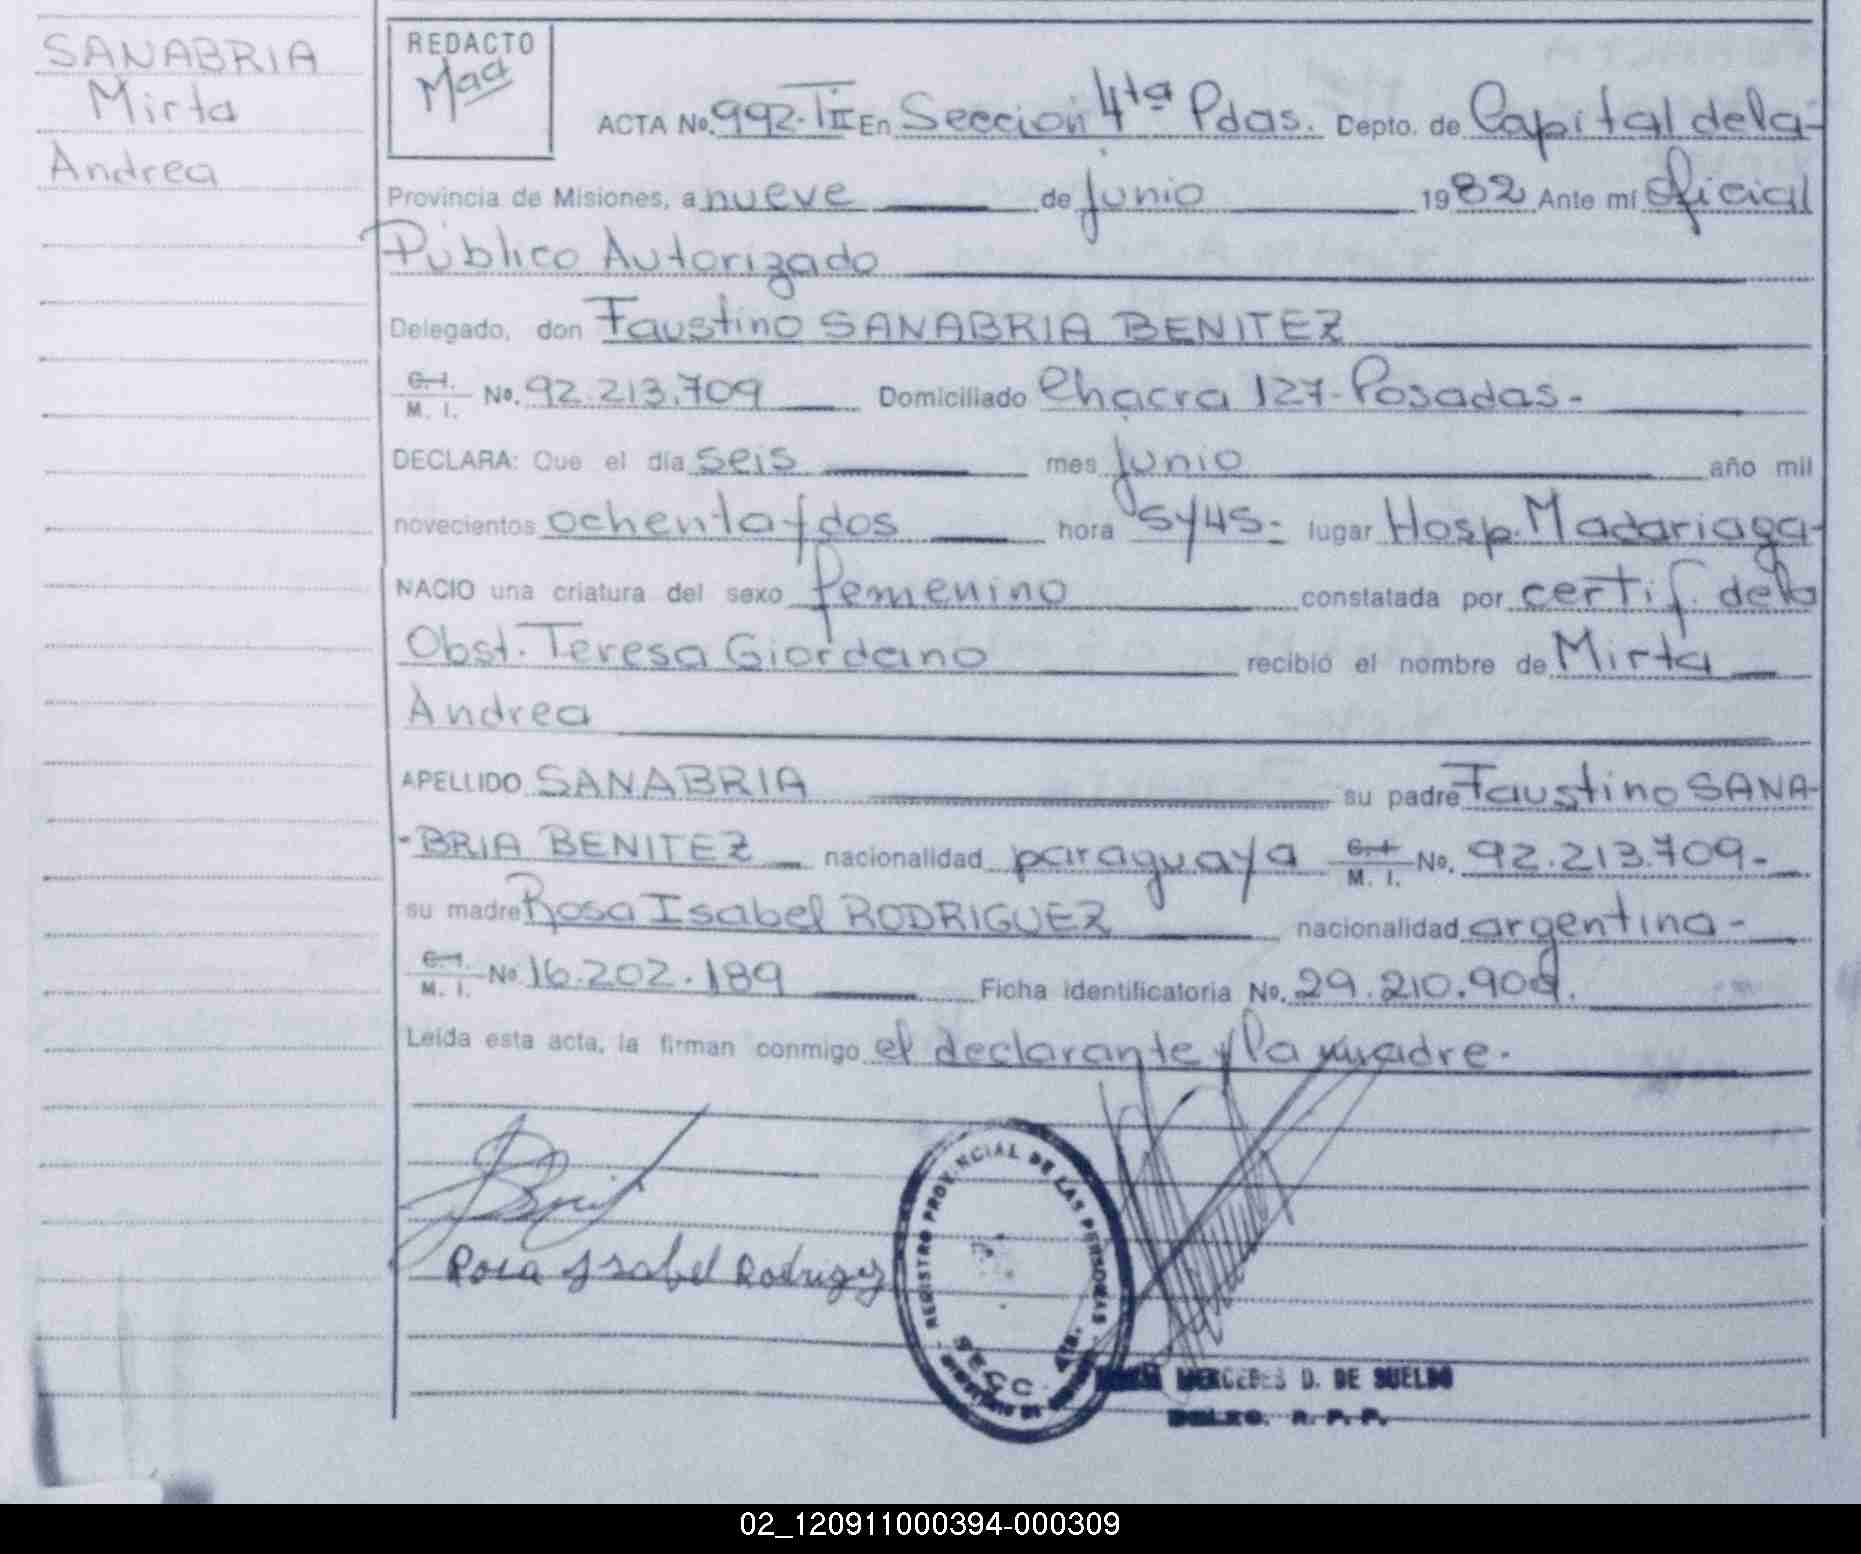 SANABRIA
Mirta
Andrea
REDACTO
Maa
ACTA No. 992.TII En Sección 4ta Pdas. Depto. de Capital de la-
Provincia de Misiones, a nueve de junio 1982 Ante mí Oficial
Público Autorizado
Delegado, don Faustino SANABRIA BENITEZ
C.I. M. I. No. 92.213.709 Domiciliado Chacra 127-Posadas-
DECLARA: Que el día seis mes junio año mil
novecientos ochenta y dos hora 5y45- lugar Hosp. Madariaga-
NACIO una criatura del sexo femenino constatada por certif. de la
Obst. Teresa Giordano recibió el nombre de Mirta
Andrea
APELLIDO SANABRIA su padre Faustino SANA-
-BRIA BENITEZ nacionalidad paraguaya C.I. M. I. No. 92.213.709-
su madre Rosa Isabel RODRIGUEZ nacionalidad argentina-
C.I. M. I. No. 16.202.189 Ficha identificatoria No. 29.210.909.
Leída esta acta, la firman conmigo el declarante y la madre.
Rosa Isabel Rodriguez
REGISTRO PROVINCIAL DE LAS PERSONAS
SECC. 4TA.
MERCEDES D. DE SUELDO
R. P. P.
02_120911000394-000309